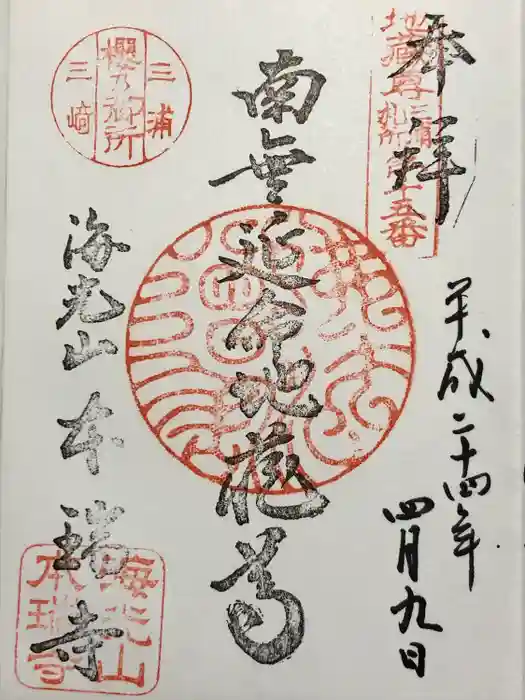 奉拝
地蔵尊三浦札所第十五番
平成二十四年
四月九日
南無延命地蔵尊
三浦
櫻乃御所
三崎
海光山 本瑞寺
海光山
本瑞寺